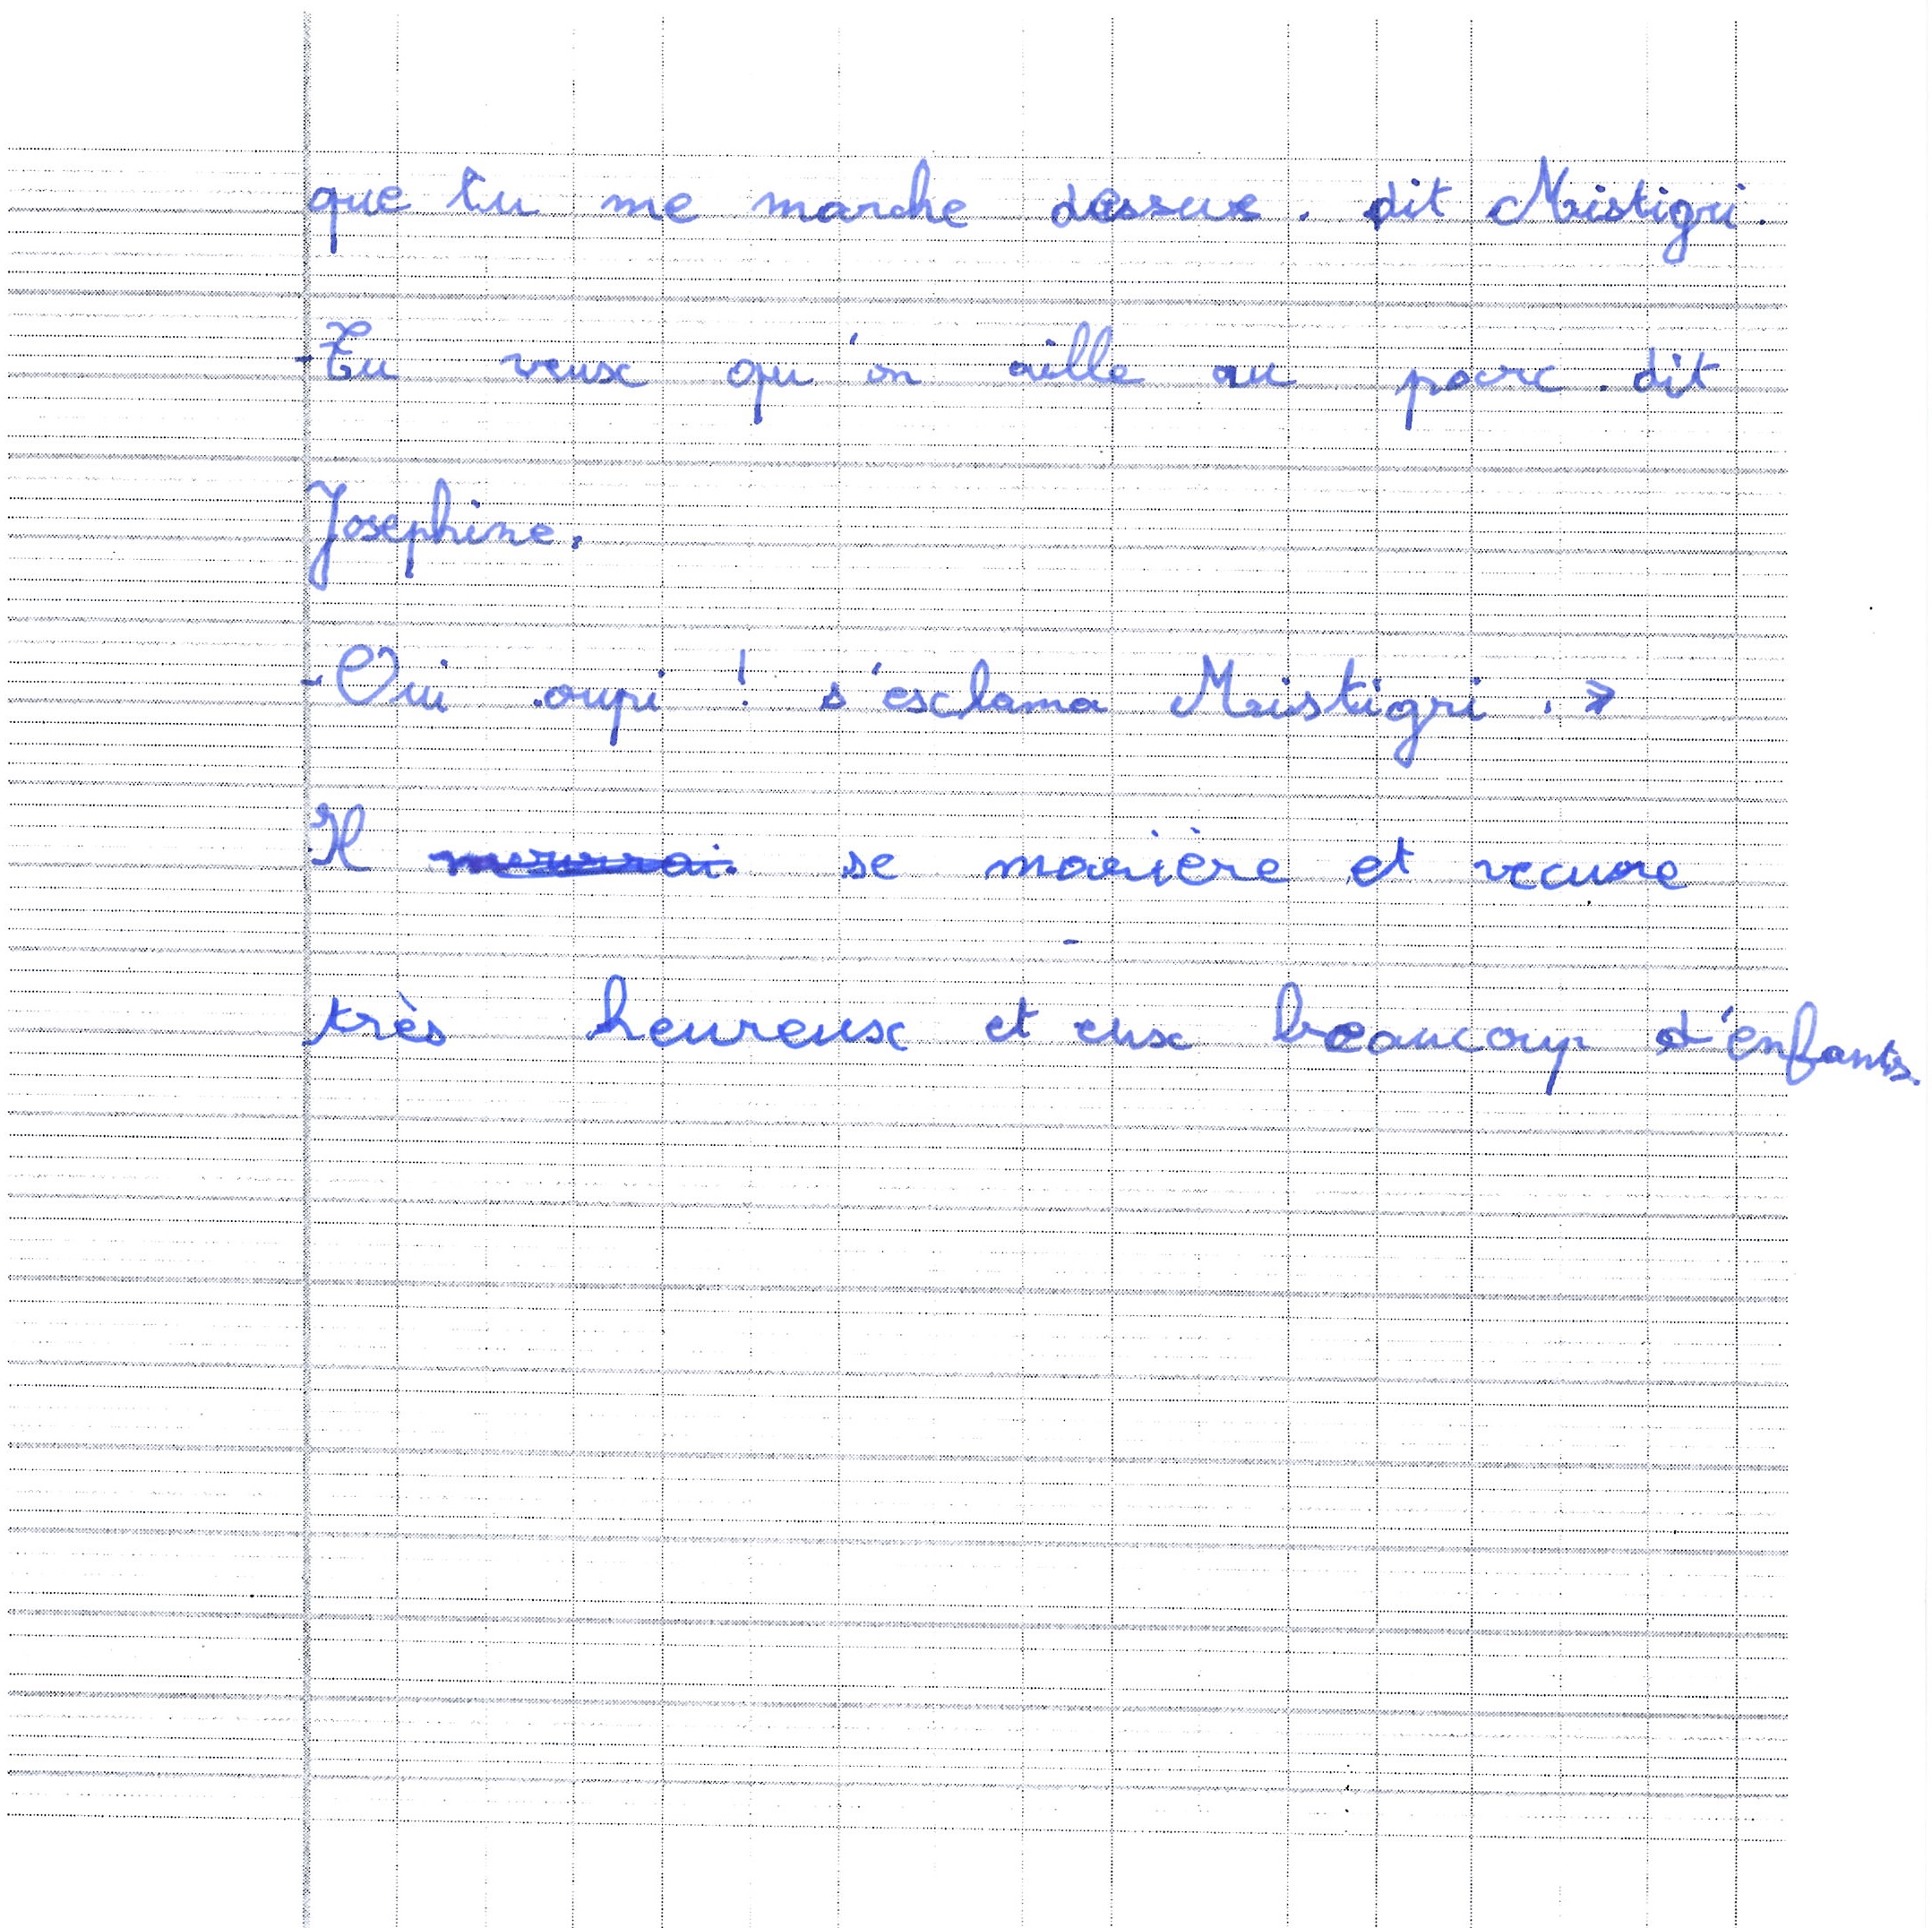 que tu me marche dessus. dit Mistigri.
-Tu veux qu'on aille au parc. dit
Josephine.
-Oui oupi ! s'esclama Mistigri. »
Il se marière et vecure
très heureux et eux beaucoup d'enfants.